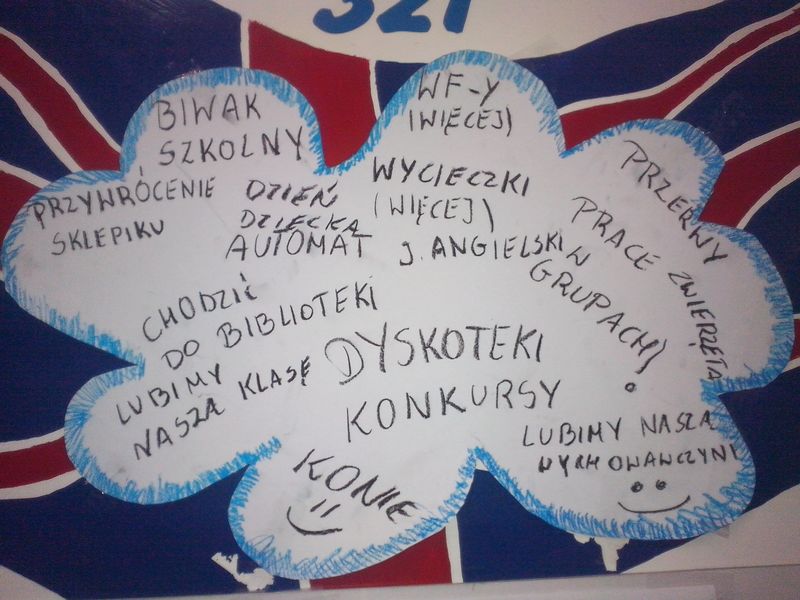 321
BIWAK
SZKOLNY
WF-Y
(WIĘCEJ)
PRZYWRÓCENIE
SKLEPIKU
DZIEŃ
DZIECKA
AUTOMAT
WYCIECZKI
(WIĘCEJ)
J. ANGIELSKI
PRZERWY
PRACE W
GRUPACH!
ZWIERZĘTA
CHODZIĆ
DO BIBLIOTEKI
LUBIMY
NASZĄ KLASĘ
DYSKOTEKI
KONKURSY
KONIE
LUBIMY NASZĄ
WYCHOWAWCZYNI